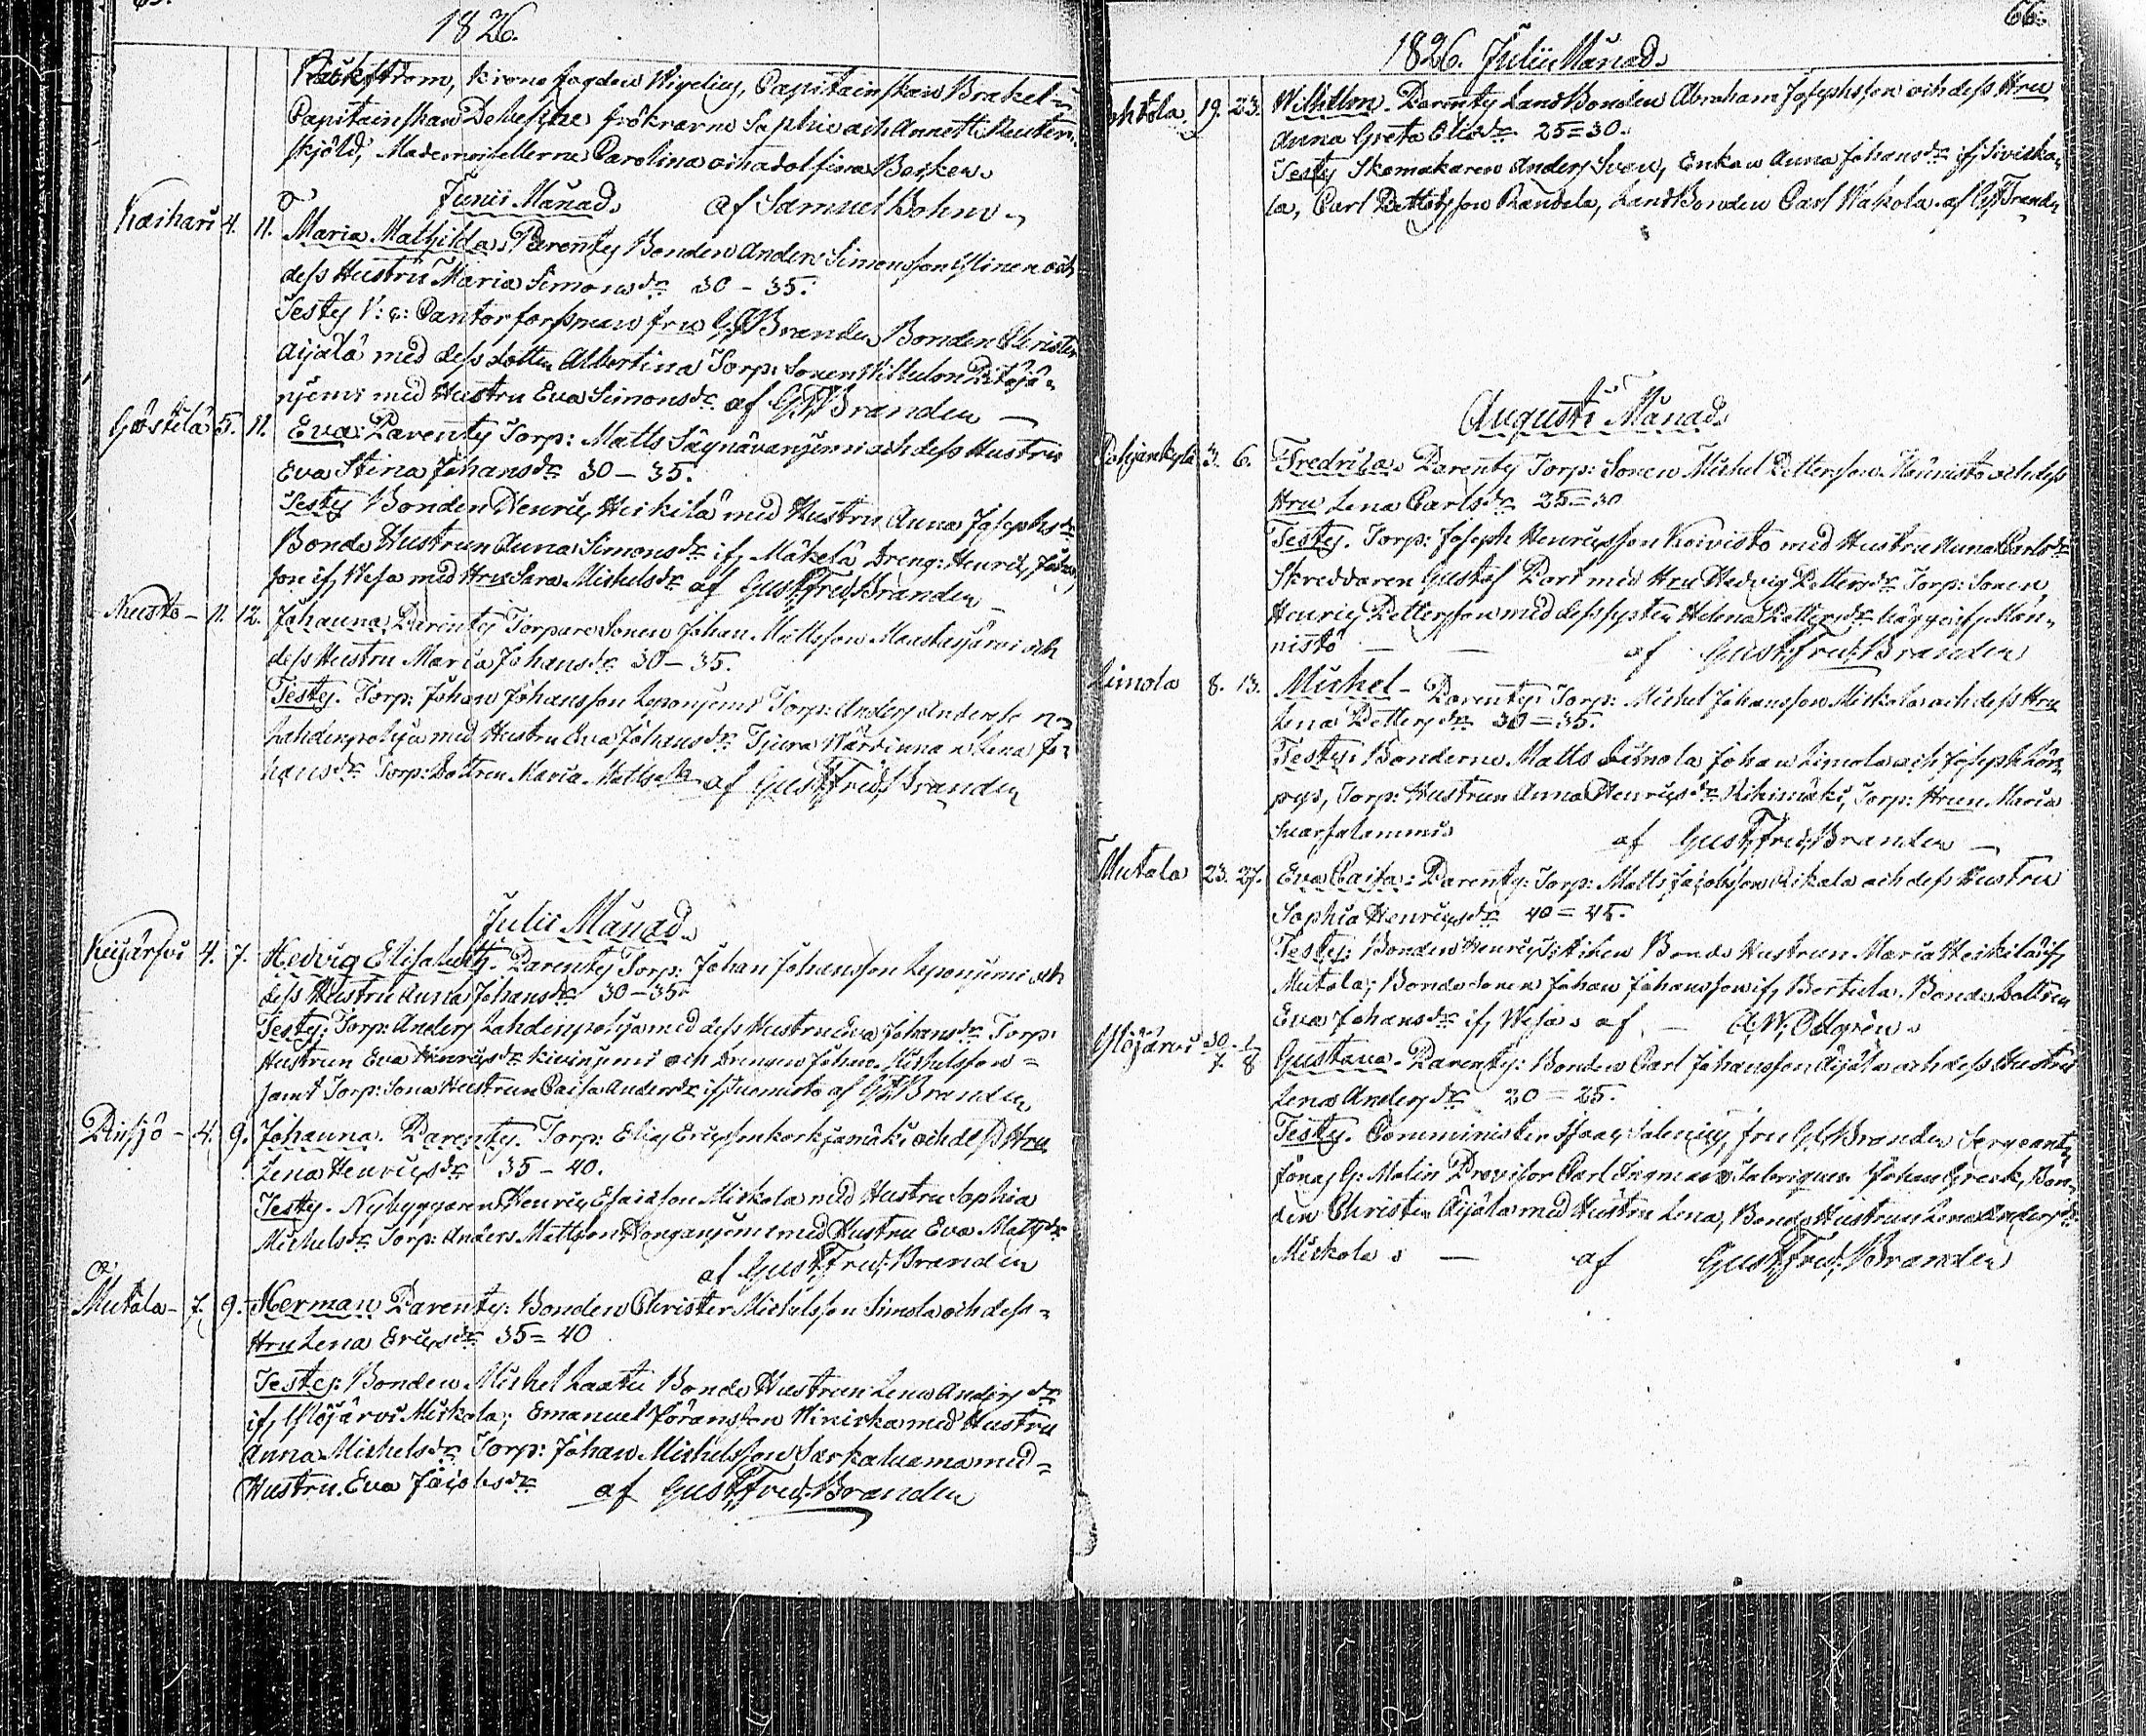 1826.
Räckström, krono fogden Wigelius, Capitainskan Brakel-
Capitainskan fröknarne Sophie och Annett Reuter-
skjöld, Mademoisellerne Carolina och Adolfina
Junii Månad. af Samuel Bohm
Kaihari 4. 11. Maria Mathilda. Parentes Bonden Anders Simonsson Ylinen och
dess Hustru Maria Simonsdr 30 - 35.
Testes V: c: Cantorforssman fru G F Branden Bonden Christer
Äijälä med dess dotter Albertina Torp: Sonen Wilhelm
njemi med Hustru Eva Simonsdr af G F Branden
5. 11. Eva: Parentes Torp: Matts och dess Hustru
Eva Stina Johansdr 30 - 35.
Testes Bonden Henric Heikilä med Hustru Anna Josephsdr
Bonde Hustrun Anna Simonsdr ifr Mäkelä Dreng: Henric
son ifr Wesa med Hru Sara Michelsdr af Gust Fred Branden
Kusto - 11. 12. Johanna Parentes Torpare Sonen Johan Mattsson och
dess Hustru Maria Johansdr 30 - 35.
Testes. Torp: Johan Johansson Leponjemi Torp: Anders Andersson
Lahdenpohja med Hustru Eva Johansdr Tjura Wärdinnan Lena Jo-
hansdr Torp: Dottren Maria Mattsdr af Gust Fred Branden
Julii Månad.
Keijärfvi 4. 7. Hedvig Elisabeth. Parentes Torp: Johan Johansson Leponjemi och
dess Hustru Anna Johansdr 30 - 35
Testes: Torp: Anders Lahdenpohja med dess Hustru Eva Johansdr Torp:
Hustrun Eva Henricsdr Kivinjemi och Drengen Johan Michelsson =
samt Torp: Sons Hustrun Caisa Andersdr ifr af G F Branden
Pinsjö - 4. 9. Johanna. Parentes. Torp: Elias Ericsson Korkjamäki och dess Hru
Lena Henricsdr 35 - 40.
Testes. Nybyggaren Henric Esaiasson Mickola med Hustru Sophia
Michelsdr Torp: Anders Mattsson Honganjemi med Hustru Eva Mattsdr
af Gust Fred: Branden
Mutala - 7. 9. Herman Parentes: Bonden Christer Michelsson Simola och dess =
Hru Lena Ericsdr 35 = 40
Testes: Bonden Michel Laatu Bonde Hustrun Lena Anders dr
ifr Ylöjärvi Mickola; Emanuel Göransson med Hustru
Anna Michelsdr Torp: Johan Michelsson med =
Hustru Eva Jacobsdr af Gust Fred: Branden
66.
1826. Julii Månad.
19. 23. Wilhelm. Parentes LandBonden Abraham Josephsson och dess Hru
Anna Greta Eliasdr 25 = 30.
Testes Skomakaren Anders Sven, Enkan Anna Johansdr ifr
la, Carl Pettersson LandBonden Carl Wahola af G F Branden
Augusti Månad.
Pohjankylä 3. 6. Fredrika. Parentes Torp: Sonen Michel Pettersson och dess
Hru Lena Carlsdr 25 = 30
Testes. Torp: Joseph Henricsson Koivisto med Hustru Anna Carlsdr
Skreddaren Gustaf med Hru Hedvig Pettersdr Torp: Sonen
Henric Pettersson med dess syster Helena Pettersdr bägge ifr Män-
nistö — — af Gust Fred: Branden
Limola 8. 13. Michel - Parentes Torp: Michel Johansson och dess Hru
Lena Pettersdr 30 = 35.
Testes: Bönderne Matts Limola Johan Limola och Joseph
Torp: Hustrun Anna Henricsdr Rihimäki, Torp: Hrun Maria
af Gust Fred Branden —
Mutala 23. 27. Eva Caisa: Parentes: Torp: Matts Jacobsson och dess Hustru
Sophia Henricsdr 40 = 45.
Testes: Bonden Henric Bonde Hustrun Maria Heikilä ifr
Mutala; Bonde Sonen Johan Johansson ifr Bertula. Bonde Dottren
Eva Johansdr ifr Wesa. af — A. W. Odgren.
Ylöjärvi 30/7. 1/8 Gustava. Parentes: Bonden Carl Johansson Äijälä och dess Hustru
Lena Anders dr 20 = 25.
Testes. Comminister Isaac Salenius, fru G F Branden Sergeant
Jonas G: Malin Provisor Carl Ingman Fabriquen Johan Bon-
den Christer Äijälä med Hustru Lena, Bonde Hustrun Lena Andersdr
Mickola — af Gust Fred: Branden